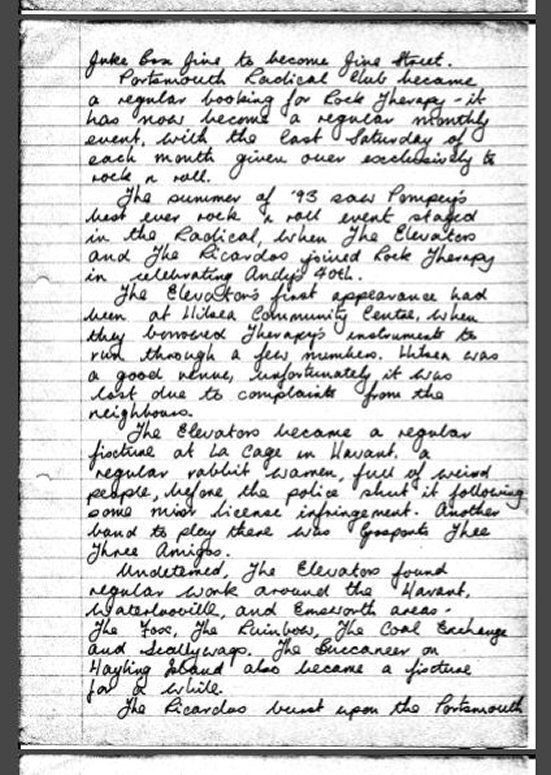 Juke Box Jive to become Jive Street.
Portsmouth Radical Club became
a regular booking for Rock Therapy - it
has now become a regular monthly
event, with the last Saturday of
each month given over exclusively to
rock n roll.
The summer of '93 saw Pompey's
best ever rock n roll event staged
in the Radical, when The Elevators
and The Ricardos joined Rock Therapy
in celebrating Andy's 40th.
The Elevators first appearance had
been at Hilsea Community Centre, when
they borrowed Therapy's instruments to
run through a few numbers. Hilsea was
a good venue, unfortunately it was
lost due to complaints from the
neighbours.
The Elevators became a regular
fixture at La Cage in Havant, a
regular rabbit warren, full of weird
people, before the police shut it following
some minor license infringement. Another
band to play there was Gosports Thee
Three Amigos.
Undeterred, The Elevators found
regular work around the Havant,
Waterlooville, and Emsworth areas -
The Fox, The Rainbow, The Coal Exchange
and Scallywags. The Buccaneer on
Hayling Island also became a fixture
for a while.
The Ricardos burst upon the Portsmouth